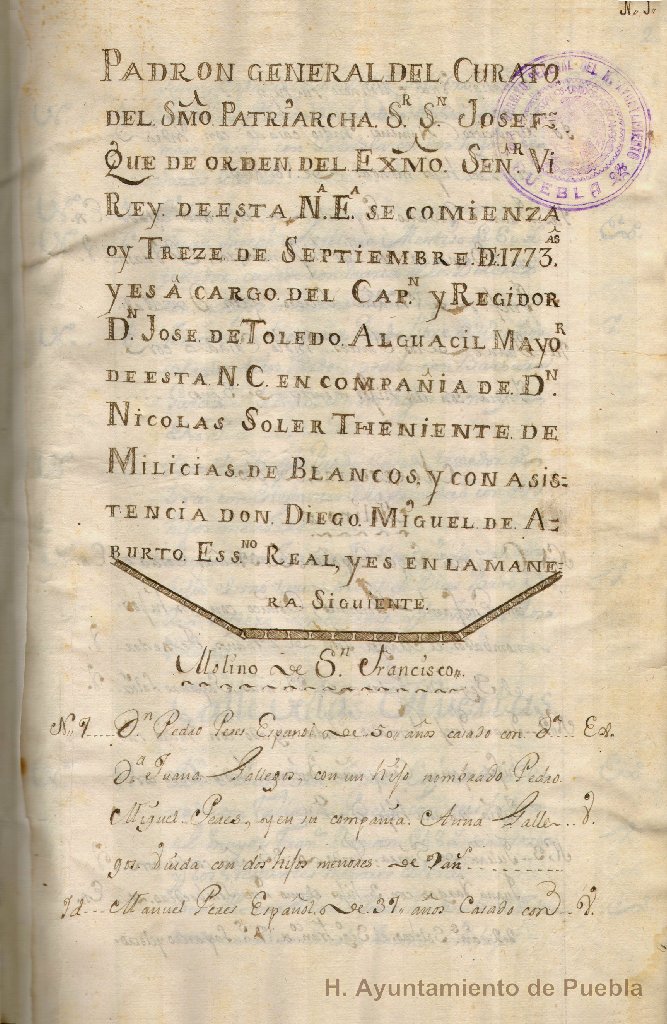 N. 1.
PADRON GENERAL DEL CURATO
DEL SMO PATRIARCHA. SR. SN. JOSEF=
QUE DE ORDEN. DEL EXMO. SENAR. VI
REY. DE ESTA NA. EA. SE COMIENZA
OY TREZE DE SEPTIEMBRE. D. 1773. AS
Y ES A CARGO. DEL CAPN. Y REGIDOR
DN. JOSE. DE TOLEDO. ALGUACIL MAYOR
DE ESTA. N. C. EN COMPAÑIA DE. DN.
NICOLAS SOLER THENIENTE. DE
MILICIAS. DE BLANCOS. Y CON ASIS=
TENCIA DON. DIEGO. MIGUEL DE. A=
BURTO. ESSNO. REAL, Y ES EN LA MANE=
RA SIGUIENTE.
Molino de Sn. Francisco
Dn. Pedro Peres Español de 50 años casado con
Da. Juana Gallegos, con un hijo nombrado Pedro
Miguel Peres, y en su compañia Anna Galle
gos viuda con dos hijos menores de
Id. Manuel Peres Español de años Casado con
PUEBLA
H. Ayuntamiento de Puebla